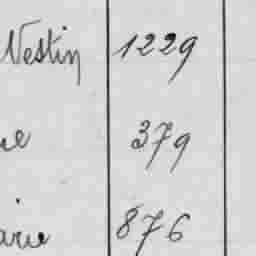 Vestin 1229
ue 379
arie 876